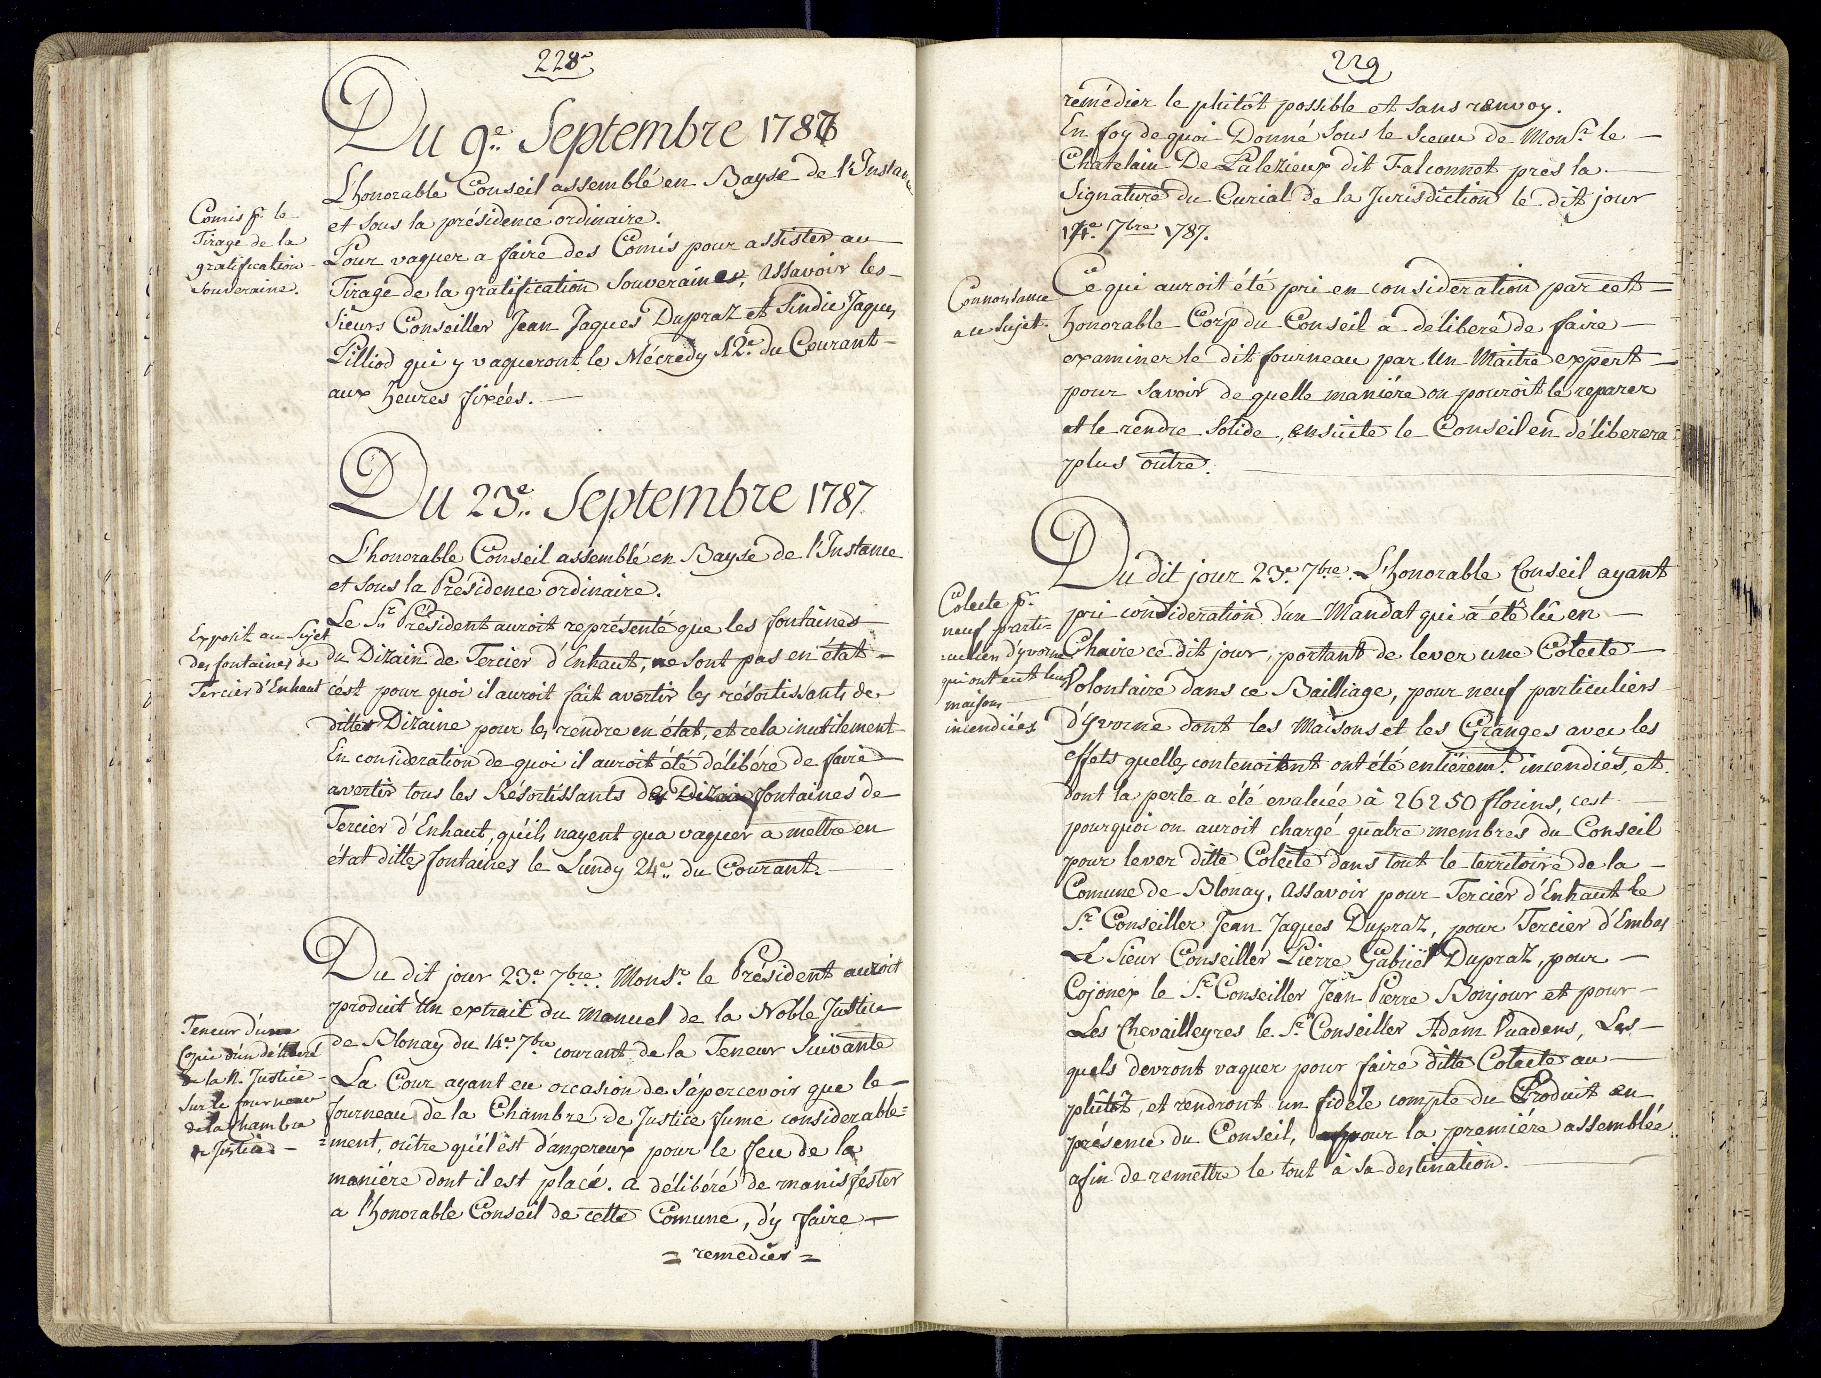 228e
Du 9e. Septembre 1787
L'honorable Conseil assemblé en Bayse de l'Instance
et sous la présidence ordinaire.
Comis pr. le
Tirage de la
gratification
Souveraine.
Pour vaquer a faire des Comis pour assister au
Tirage de la gratification Souveraine, assavoir les
Sieurs Conseiller Jean Jaques Dupraz et Sindic Jaques
Pilliod qui y vaqueront le Mécredy 12e. du Courant
aux heures fixées.
Du 23e. Septembre 1787
L'honorable Conseil assemblé en Bayse de l'Instance
et sous la Présidence ordinaire.
Exposit au Sujet
des fontaines de
Tercier d'Enhaut
Le Sr. Président auroit représenté que les fontaines
du Dizain de Tercier d'Enhaut, ne sont pas en état
c'ést pour quoi il auroit fait avertir les résortissants de
dittes Dizaine pour les rendre en état, et cela inutilement
En consideration de quoi il auroit été délibéré de faire
avertir tous les Résortissants des fontaines de
Tercier d'Enhaut, qu'éils nayent qua vaquer a mettre en
état dittes fontaines le Lundy 24e. du Courant.
Du dit jour 23e. 7bre. Monsr. le Président auroit
produit Un extrait du manuel de la Noble Justice
de Blonay du 14e. 7bre courant de la Teneur Suivante
Teneur d'une
Copie d'un délibéré
de la N. Justice
Sur le fourneau
de la Chambre
de Justice
La Cour ayant eu occasion de s'apercevoir que le
fourneau de la Chambre de Justice fume considerable=
=ment, oûtre quéil est dangereux pour le feu de la
maniére dont il est placé. a délibéré de manisféster
a l'honorable Conseil de cette Comune, d'y faire
= remedier =
229
remédier le plûtôt possible et sans renvoy.
En foy de quoi Donné sous le Sceau de Monsr. le
Chatelain De Palezieux dit Falconnet prés la
Signature du Curial de la Jurisdiction le dit jour
14e. 7bre 1787.
Connoisance
au Sujet.
Ce qui auroit été pri en consideration par cet
honorable Corp du Conseil a délibéré de faire
examiner le dit fourneau par Un Maitre expert
pour Savoir de quelle maniére on pouroit le reparer
et le rendre Solide, ensuite le Conseil en déliberera
plus oûtre.
Du dit jour 23e. 7bre. L'honorable Conseil ayant
Colecte pr.
neuf parti=
culiers d'yvorne
qui ont eut leurs
maisons
incendiées
pri consideration d'un Mandat qui a été lû en
Chaire ce dit jour, portant de lever une Colecte
Volontaire dans ce Bailliage, pour neuf particuliers
d'yvorne dont les Maisons et les Granges avec les
effets quelles contenoient ont été entiéremt. incendiés, et
dont la perte a été evaluée à 26250 florins, cest
pourquoi on auroit chargé quatre membres du Conseil
pour lever ditte Colecte dans tout le territoire de la
Comune de Blonay, assavoir pour Tercier d'Enhaut le
Sr. Conseiller Jean Jaques Dupraz, pour Tercier d'Embas
Le Sieur Conseiller Pierre Gabriel Dupraz, pour
Cojonex le Sr. Conseiller Jean Pierre Bonjour et pour
Les Chevalleyres le Sr. Conseiller Adam Vuadens, Les
quels devront vaquer pour faire ditte Colecte au
plûtôt, et rendront un fidéle compte du Produit en
présence du Conseil, pour la premiére assemblée
afin de remettre le tout à sa destination.